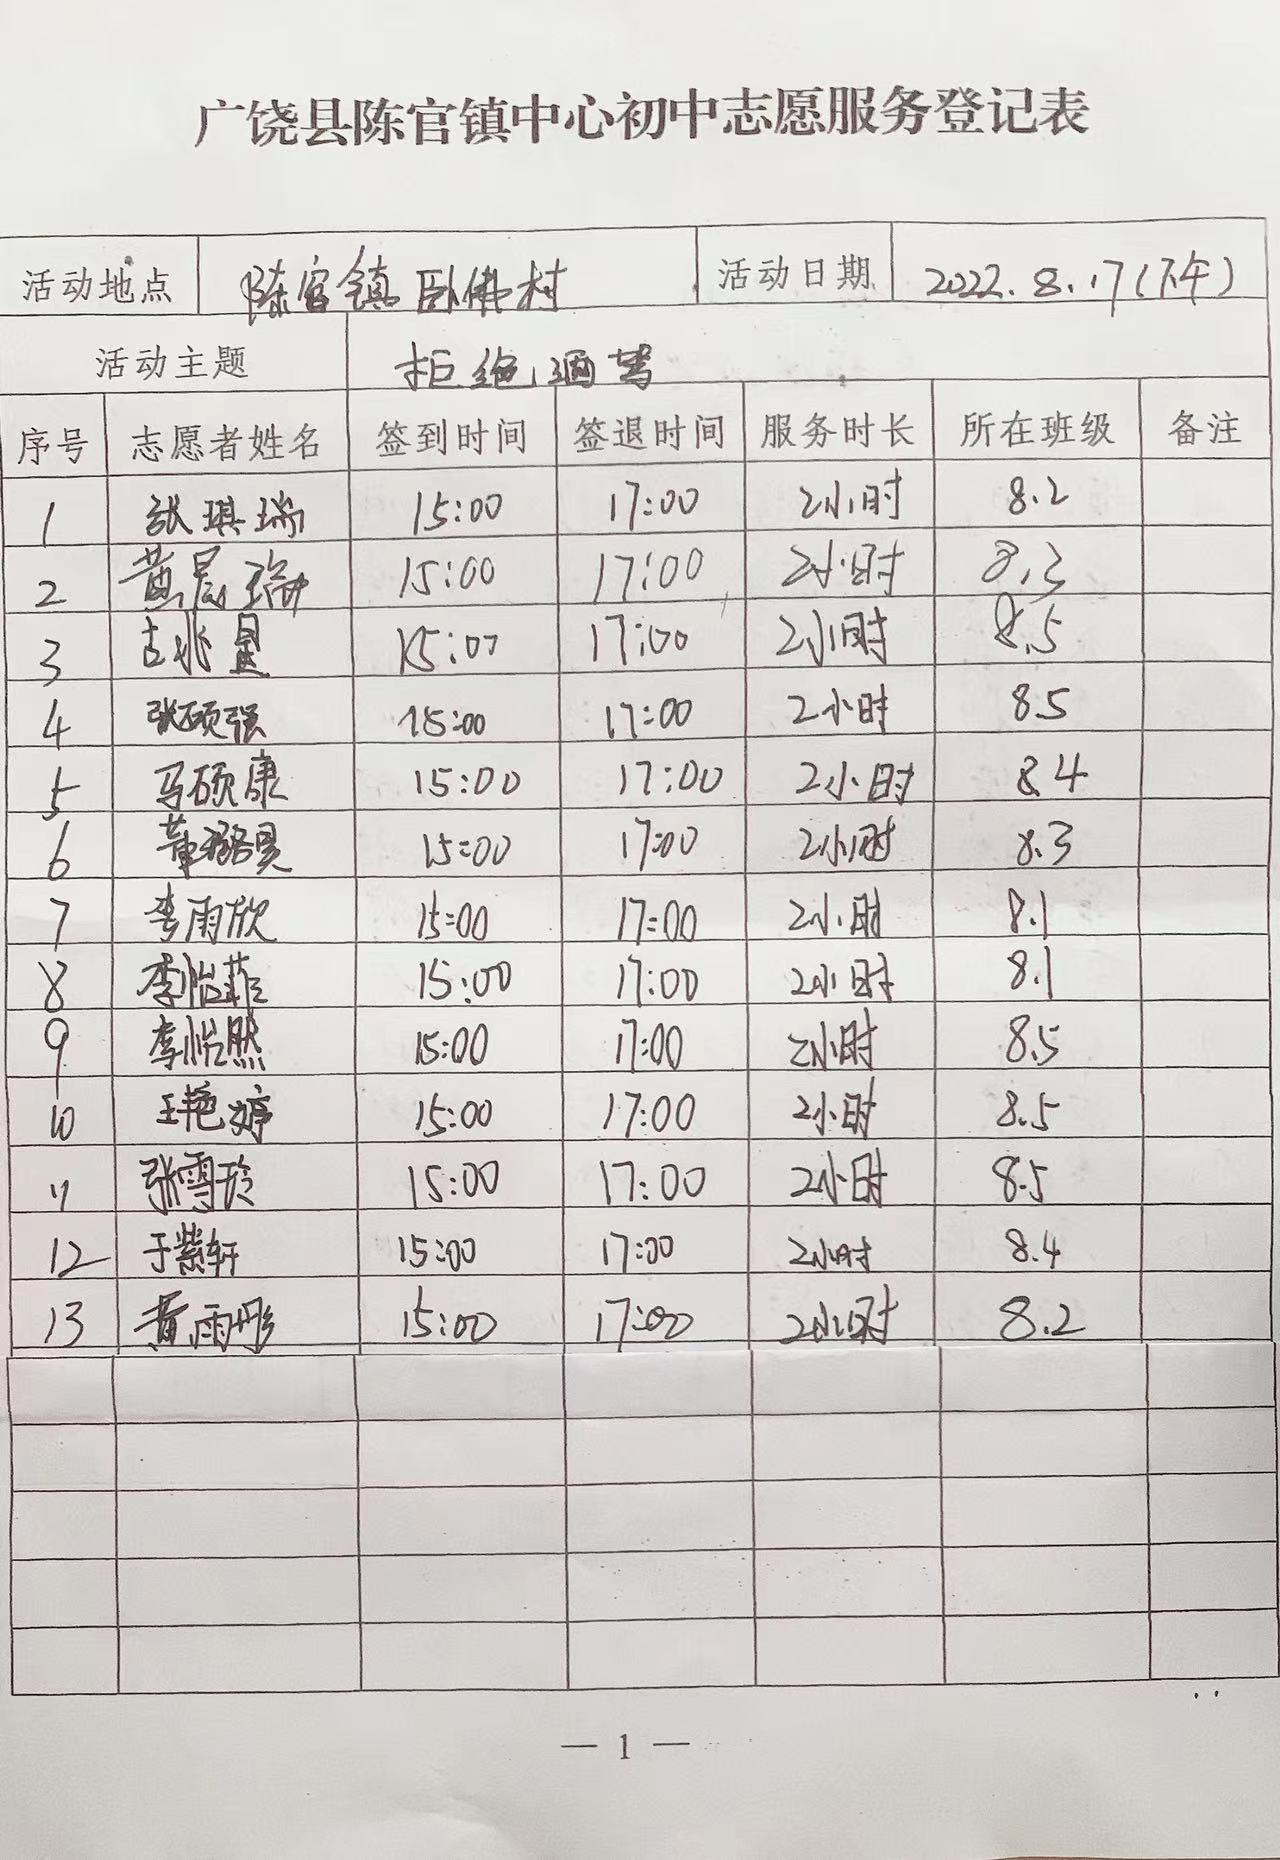 广饶县陈官镇中心初中志愿服务登记表
活动地点 陈官镇卧佛村 活动日期 2022.8.17(下午)
活动主题 拒绝酒驾
序号 志愿者姓名 签到时间 签退时间 服务时长 所在班级 备注
1 张琪瑞 15:00 17:00 2小时 8.2
2 黄晨瑞 15:00 17:00 2小时 8.3
3 古兆量 15:00 17:00 2小时 8.5
4 张硕强 15:00 17:00 2小时 8.5
5 马硕康 15:00 17:00 2小时 8.4
6 董璐昊 15:00 17:00 2小时 8.3
7 李雨欣 15:00 17:00 2小时 8.1
8 李怡菲 15:00 17:00 2小时 8.1
9 李怡然 15:00 17:00 2小时 8.5
10 王艳婷 15:00 17:00 2小时 8.5
11 张雪玲 15:00 17:00 2小时 8.5
12 于紫轩 15:00 17:00 2小时 8.4
13 黄雨彤 15:00 17:00 2小时 8.2
— 1 —